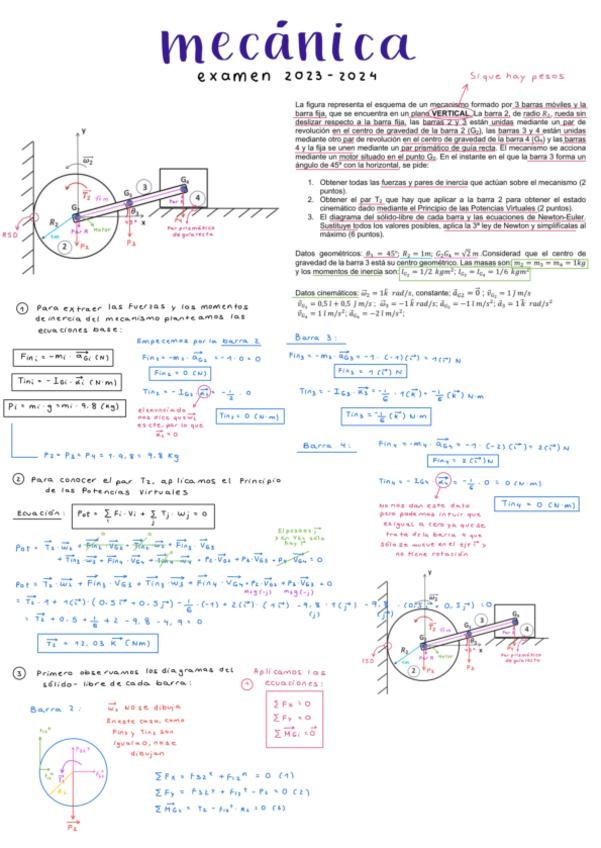 mecánica
examen 2023-2024
Si que hay pesos
La figura representa el esquema de un mecanismo formado por 3 barras móviles y la
barra fija, que se encuentra en un plano VERTICAL. La barra 2, de radio R₂, rueda sin
deslizar respecto a la barra fija, las barras 2 y 3 están unidas mediante un par de
revolución en el centro de gravedad de la barra 2 (G₂), las barras 3 y 4 están unidas
mediante otro par de revolución en el centro de gravedad de la barra 4 (G₄) y las barras
4 y la fija se unen mediante un par prismático de guía recta. El mecanismo se acciona
mediante un motor situado en el punto G₂. En el instante en el que la barra 3 forma un
ángulo de 45º con la horizontal, se pide:
1. Obtener todas las fuerzas y pares de inercia que actúan sobre el mecanismo (2
puntos).
2. Obtener el par T₂ que hay que aplicar a la barra 2 para obtener el estado
cinemático dado mediante el Principio de las Potencias Virtuales (2 puntos).
3. El diagrama del sólido-libre de cada barra y las ecuaciones de Newton-Euler.
Sustituye todos los valores posibles, aplica la 3ª ley de Newton y simplifícalas al
máximo (6 puntos).
Datos geométricos: θ₃ = 45º; R₂ = 1m; G₂G₄ = √2 m. Considerad que el centro de
gravedad de la barra 3 está su centro geométrico. Las masas son m₂ = m₃ = m₄ = 1kg
y los momentos de inercia son: I_G₂ = 1/2 kgm²; I_G₃ = I_G₄ = 1/6 kgm²
Datos cinemáticos: ω₂ = 1k rad/s, constante; a_G₂ = 0; v_G₂ = 1 j m/s
v_G₃ = 0,5 i + 0,5 j m/s; ω₃ = −1 k rad/s; a_G₃ = −1 i m/s²; α₃ = 1 k rad/s²
v_G₄ = 1 i m/s; a_G₄ = −2 i m/s²;
1 Para extraer las Fuerzas y los momentos
de inercia del mecanismo planteamos las
ecuaciones base:
Fin i = -mi · aGi (N)
Tin i = - IGi · αi (N·m)
Pi = mi · g = mi · 9.8 (Kg)
P2 = P3 = P4 = 1 · 9.8 = 9.8 Kg
Empecemos por la barra 2
Fin2 = -m2 · aG2 = -1 · 0 = 0
Fin2 = 0 (N)
Tin2 = - IG2 · α2 = -1/2 · 0
el enunciado
nos dice que ω2
es cte, por lo que
α2 = 0
Tin2 = 0 (N·m)
Barra 3:
Fin3 = -m3 · aG3 = -1 · (-1)(i) = 1(i) N
Fin3 = 1 (i) N
Tin3 = - IG3 · α3 = -1/6 · 1(k) = -1/6 (k) N·m
Tin3 = -1/6 (k) N·m
Barra 4:
Fin4 = -m4 · aG4 = -1 · (-2)(i) = 2(i) N
Fin4 = 2(i) N
Tin4 = - IG4 · α4 = -1/6 · 0 = 0 (N·m)
Tin4 = 0 (N·m)
No nos dan este dato
pero podemos intuir que
es igual a cero ya que se
trata de la barra 4 que
sólo se mueve en el eje i y
no tiene rotación
2 Para conocer el par T2, aplicamos el Principio
de las Potencias Virtuales
Ecuación: Pot = Σ Fi · Vi + Σ Tj · ωj = 0
Pot = T2 · ω2 + Fin2 · VG2 + Tin2 · ω2 + Fin3 · VG3
+ Tin3 · ω3 + Fin4 · VG4 + Tin4 · ω4 + P2 · VG2 + P3 · VG3 + P4 · VG4 = 0
Pot = T2 · ω2 + Fin3 · VG3 + Tin3 · ω3 + Fin4 · VG4 + P2 · VG2 + P3 · VG3 = 0
T2 = 12,03 K (Nm)
3 Primero observamos los diagramas del
sólido-libre de cada barra:
Barra 2:
ω2 no se dibuja
En este caso, como
Fin2 y Tin2 son
igual a 0, no se
dibujan
Aplicamos las
ecuaciones:
Σ Fx = 0
Σ Fy = 0
Σ MGi = 0
Σ Fx = F32ˣ + F12ⁿ = 0 (1)
Σ Fy = F32ʸ + F12ᵗ - P2 = 0 (2)
Σ MG2 = T2 - F12ᵗ · R2 = 0 (3)